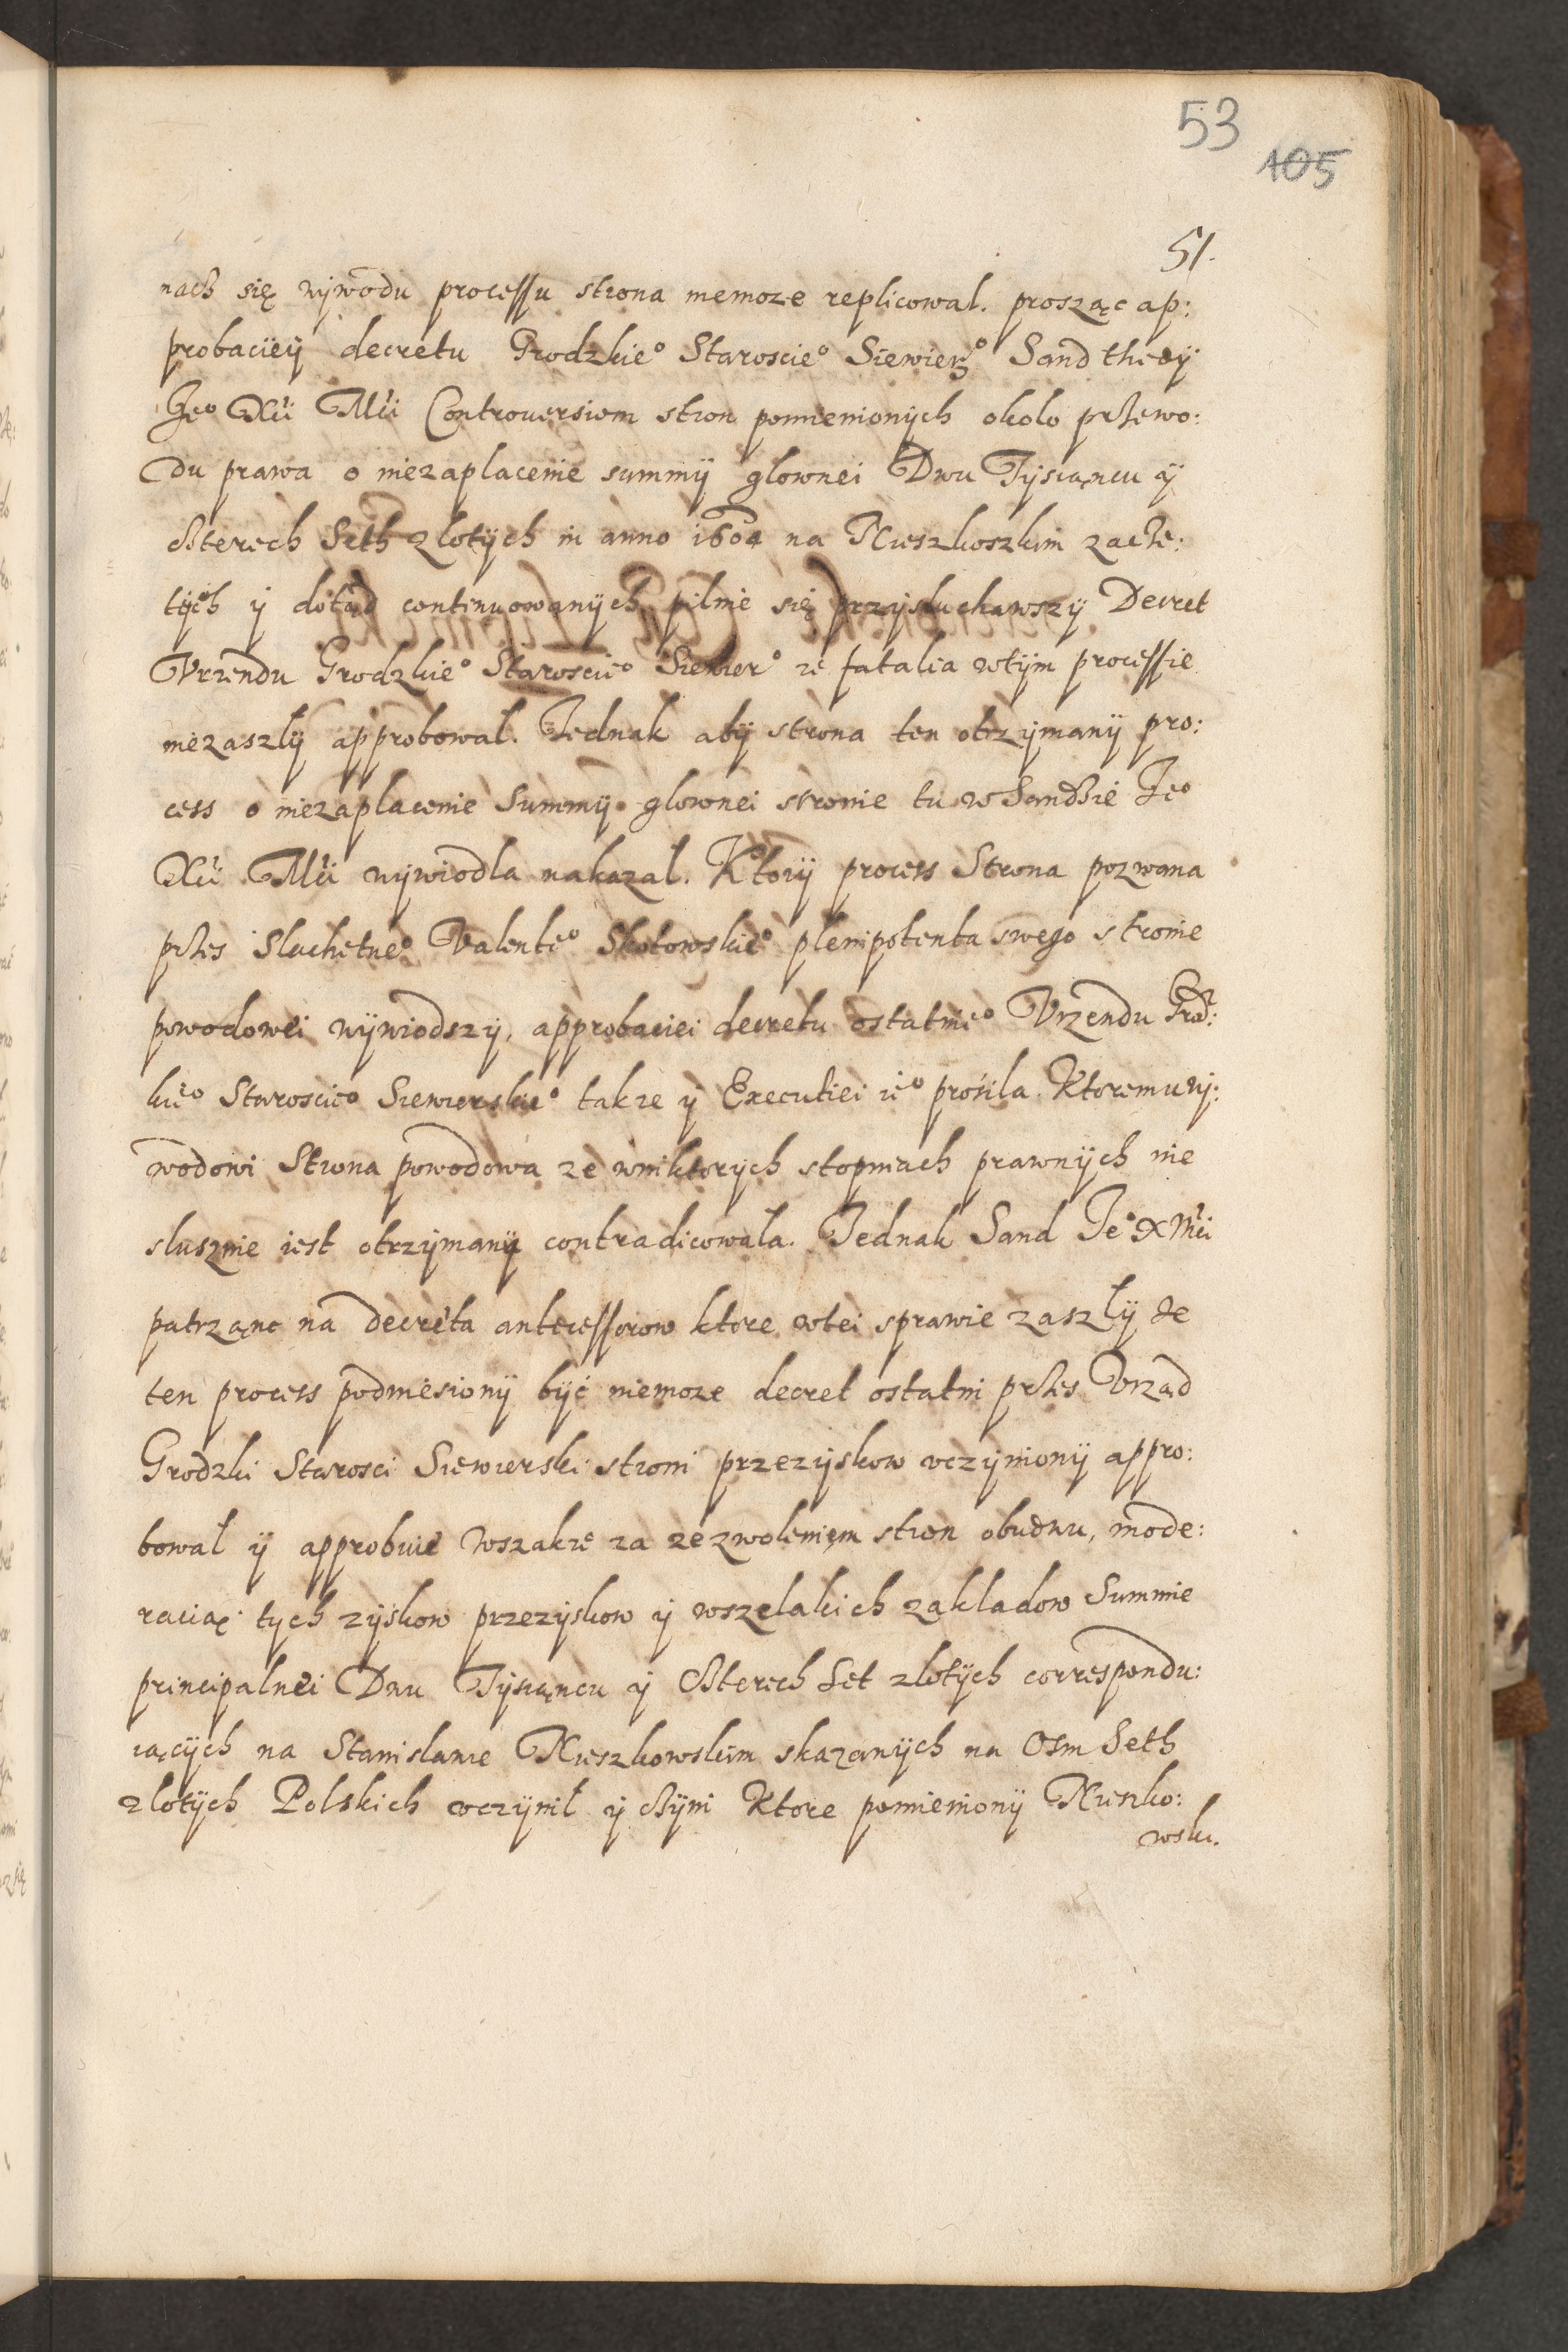 53
105
51.
nach się wywodu processu strona niemoze replicowal. prosząc ap:
probaciey decretu Grodzkie° Staroscie° Siewier° Sand thedy
Je° Xci Mci Controversiom stron pomienionych okolo przewo:
du prawa o niezaplacenie summy glownei Dwu Tysiąncu y
czterech Seth zlotych in anno 1604 na Kuszkoszkim zacze:
tych y dotąd continuowanych pilnie się przysluchawszy Decret
Vrzendu Grodzkie° Staroscie° Siewier° ze fatalia wtym processie
niezaszly approbowal. Jednak aby strona ten otrzymany pro:
cess o niezaplacenie Summy glownei stronie tu w Sandzie Je°
Xci Mci wywiodla nakazal. Ktory process Strona pozwana
przes Slachetne° Valente° Skotowskie° plenipotenta swego stronie
powodowei wywiodszy, approbaciei decretu ostatnie° Vrzendu Grodz:
kie° Staroscie° Siewierskie° takze y Executiei ie° prosila. Ktoremu wy:
wodowi Strona powodowa ze wniktorych stopniach prawnych nie
slusznie iest otrzymany contradicowala. Jednak Sand Je° X Mci
patrząnc na decreta antecessorow ktore wtei sprawie zaszly ze
ten process podniesiony być niemoze decret ostatni przes Vrząd
Grodzki Starosci Siewierski stroni przezyskow vczyniony appro:
bowal y approbuie wszakze za zezwoleniem stron obudwu, mode:
racią tych zyskow przezyskow y wszelakich zakladow Summie
principalnei Dwu Tysiąncu y Czterech Set zlotych correspondu:
iących na Stanislawie Kuszkowskim skazanych na Osm Seth
zlotych Polskich vczynil y czyni Ktore pomieniony Kuszko:
wski.